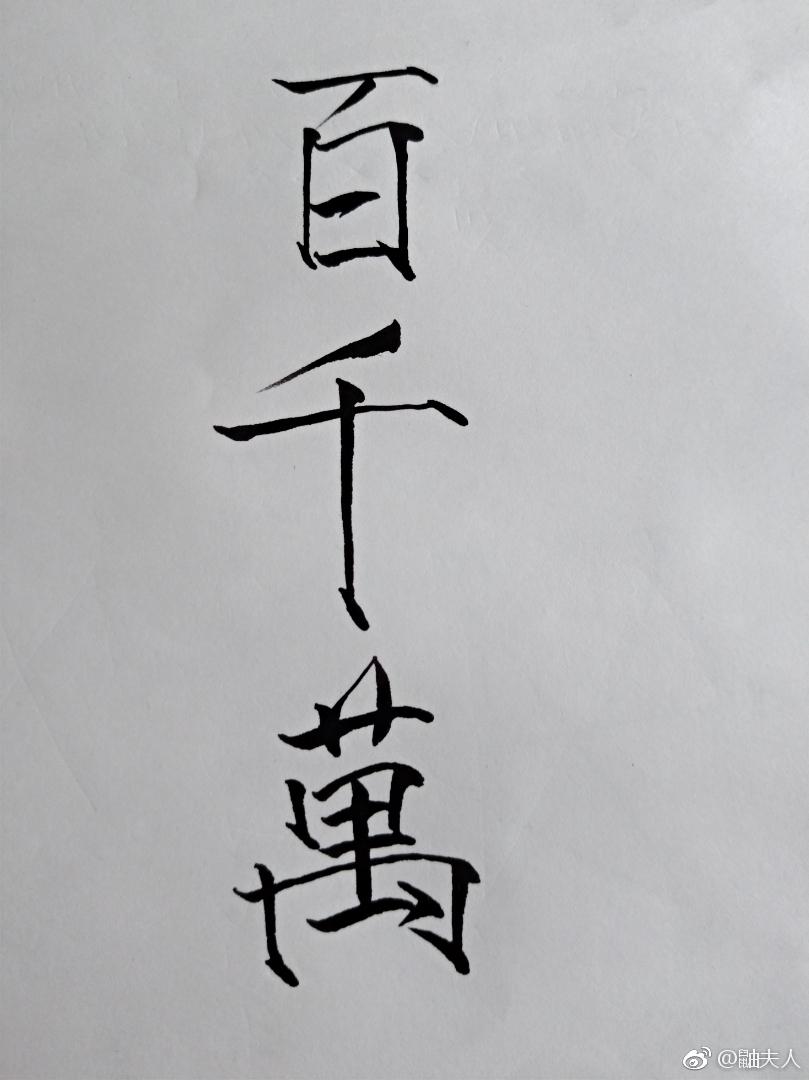 百千萬
@鼬夫人